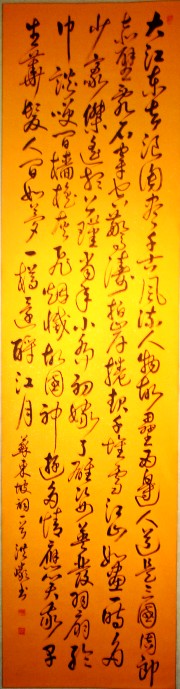 大江东去浪淘尽千古风流人物故壘西邊人道是三國周郎
赤壁乱石穿空驚涛拍岸捲起千堆雪江山如畫一時多
少豪傑遥想公瑾當年小乔初嫁了雄姿英發羽扇纶
巾談笑間檣櫓灰飛烟滅故國神遊多情應笑我早
生華髮人間如夢一樽還酹江月 蘇東坡詞 書